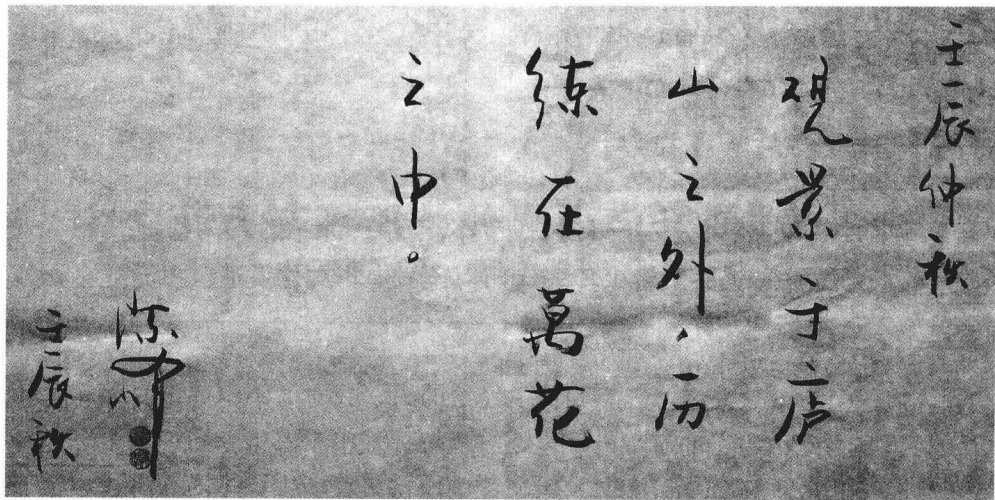 壬辰仲秋
观景于庐
山之外，历
练在萬花
之中。
壬辰秋